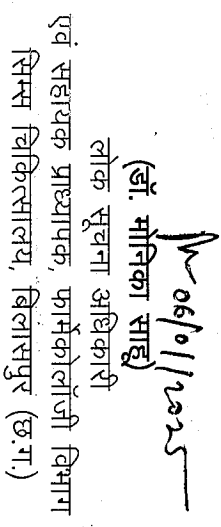 06/01/2025
(डॉ. मोनिका साहू)
लोक सूचना अधिकारी
एवं सहायक प्राध्यापक, फार्माकोलॉजी विभाग
सिम्स चिकित्सालय, बिलासपुर (छ.ग.)